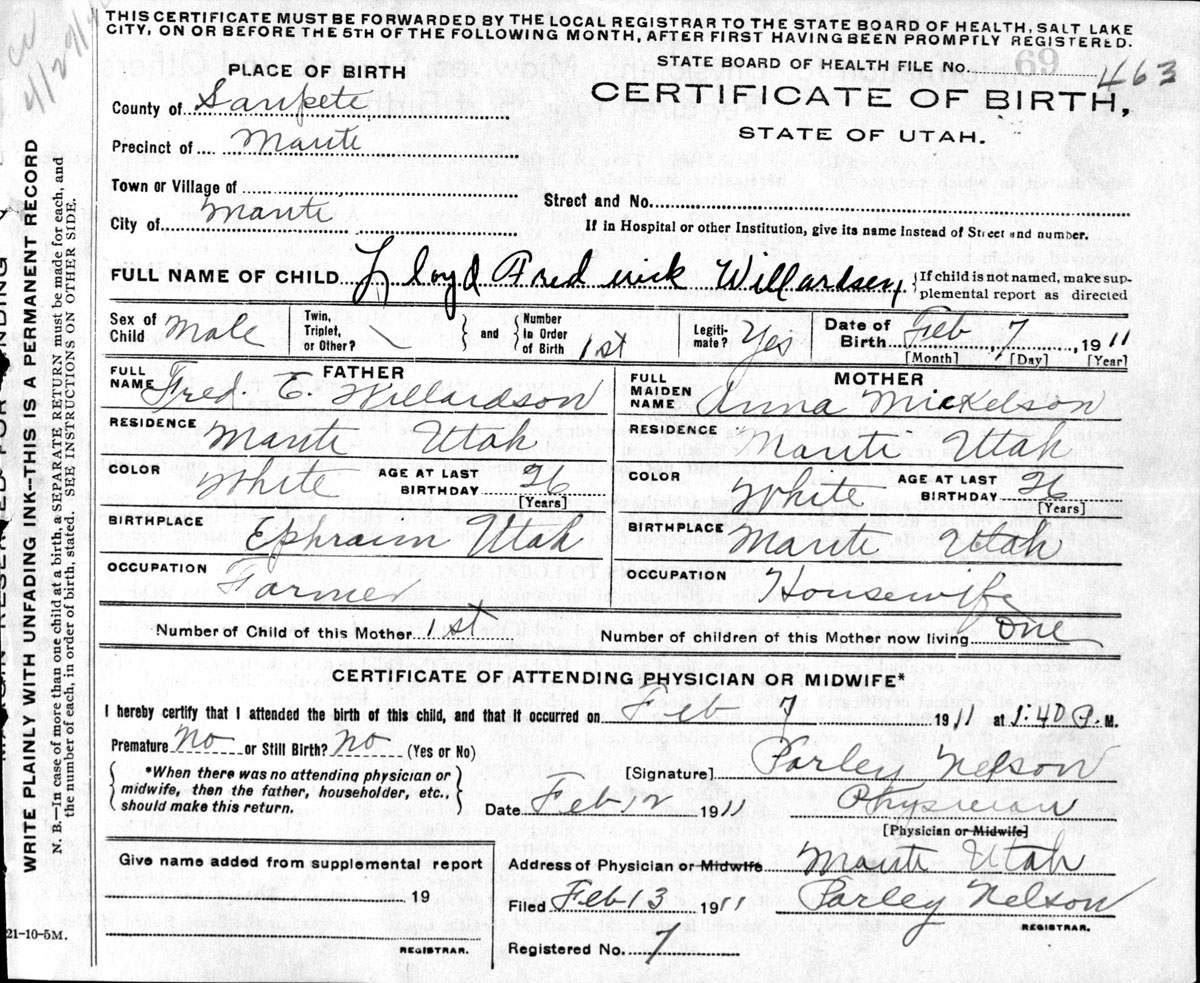 THIS CERTIFICATE MUST BE FORWARDED BY THE LOCAL REGISTRAR TO THE STATE BOARD OF HEALTH, SALT LAKE
CITY, ON OR BEFORE THE 5TH OF THE FOLLOWING MONTH, AFTER FIRST HAVING BEEN PROMPTLY REGISTERED.
PLACE OF BIRTH
STATE BOARD OF HEALTH FILE NO. 69 463
County of Sanpete
CERTIFICATE OF BIRTH,
STATE OF UTAH.
Precinct of Manti
Town or Village of
Street and No.
City of Manti
If in Hospital or other Institution, give its name instead of Street and number.
FULL NAME OF CHILD Lloyd Frederick Willardsen { If child is not named, make sup-
plemental report as directed
Sex of Child Male Twin, Triplet, or Other? \ { and } Number In Order of Birth 1st Legiti-mate? Yes Date of Birth Feb 7, 1911
[Month] [Day] [Year]
FATHER MOTHER
FULL NAME Fred. E. Willardson FULL MAIDEN NAME Anna Mickelson
RESIDENCE Manti Utah RESIDENCE Manti Utah
COLOR White AGE AT LAST BIRTHDAY 26 [Years] COLOR White AGE AT LAST BIRTHDAY 26 [Years]
BIRTHPLACE Ephraim Utah BIRTHPLACE Manti Utah
OCCUPATION Farmer OCCUPATION Housewife
Number of Child of this Mother 1st Number of children of this Mother now living One
CERTIFICATE OF ATTENDING PHYSICIAN OR MIDWIFE*
I hereby certify that I attended the birth of this child, and that it occurred on Feb 7 1911 at 1:40 P. M.
Premature No or Still Birth? No (Yes or No)
*When there was no attending physician or
midwife, then the father, householder, etc.,
should make this return.
[Signature] Parley Nelson
Date Feb 12 1911 Physician
[Physician or Midwife]
Give name added from supplemental report
19
REGISTRAR.
Address of Physician or Midwife Manti Utah
Filed Feb 13 1911 Parley Nelson
REGISTRAR.
Registered No. 7
WRITE PLAINLY WITH UNFADING INK—THIS IS A PERMANENT RECORD
N. B.—In case of more than one child at a birth, a SEPARATE RETURN must be made for each, and
the number of each, in order of birth, stated. SEE INSTRUCTIONS ON OTHER SIDE.
21-10-5M.